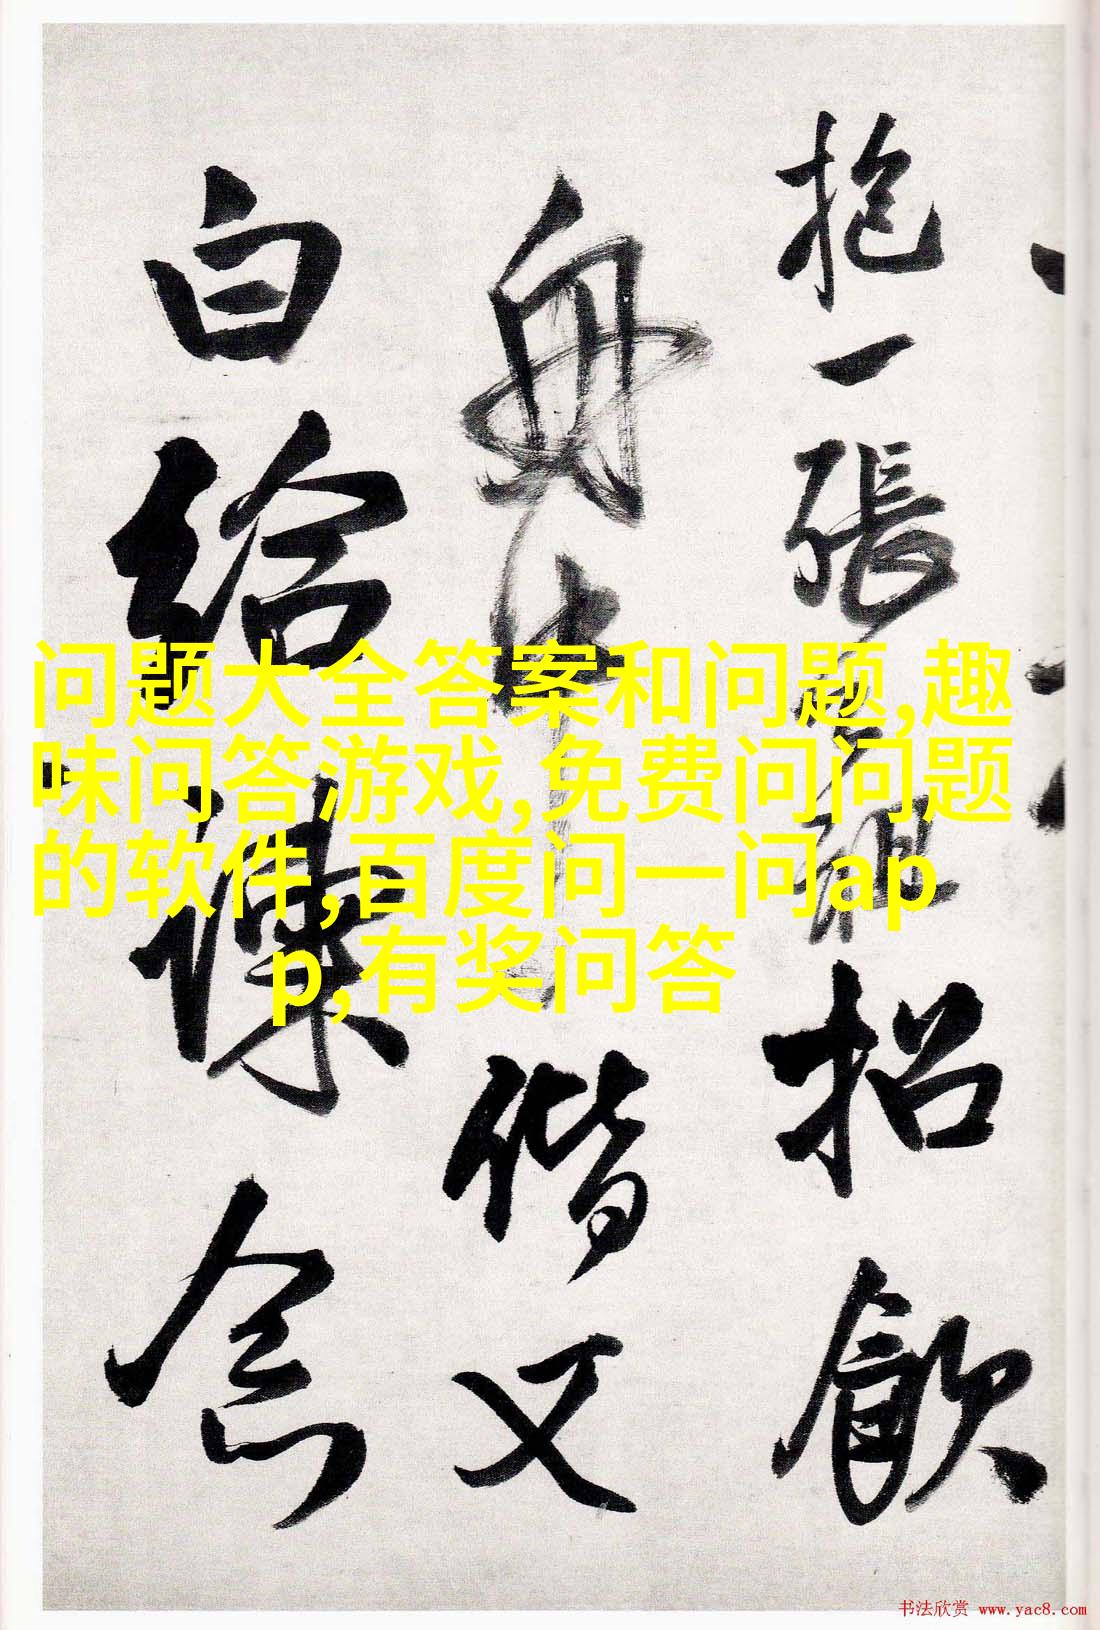 抱一張
招飲
舟中
偕又
白給諫
念
问题大全答案和问题,趣
味问答游戏,免费问问题
的软件,百度问一问ap
p,有奖问答
书法欣赏 www.yac8.com